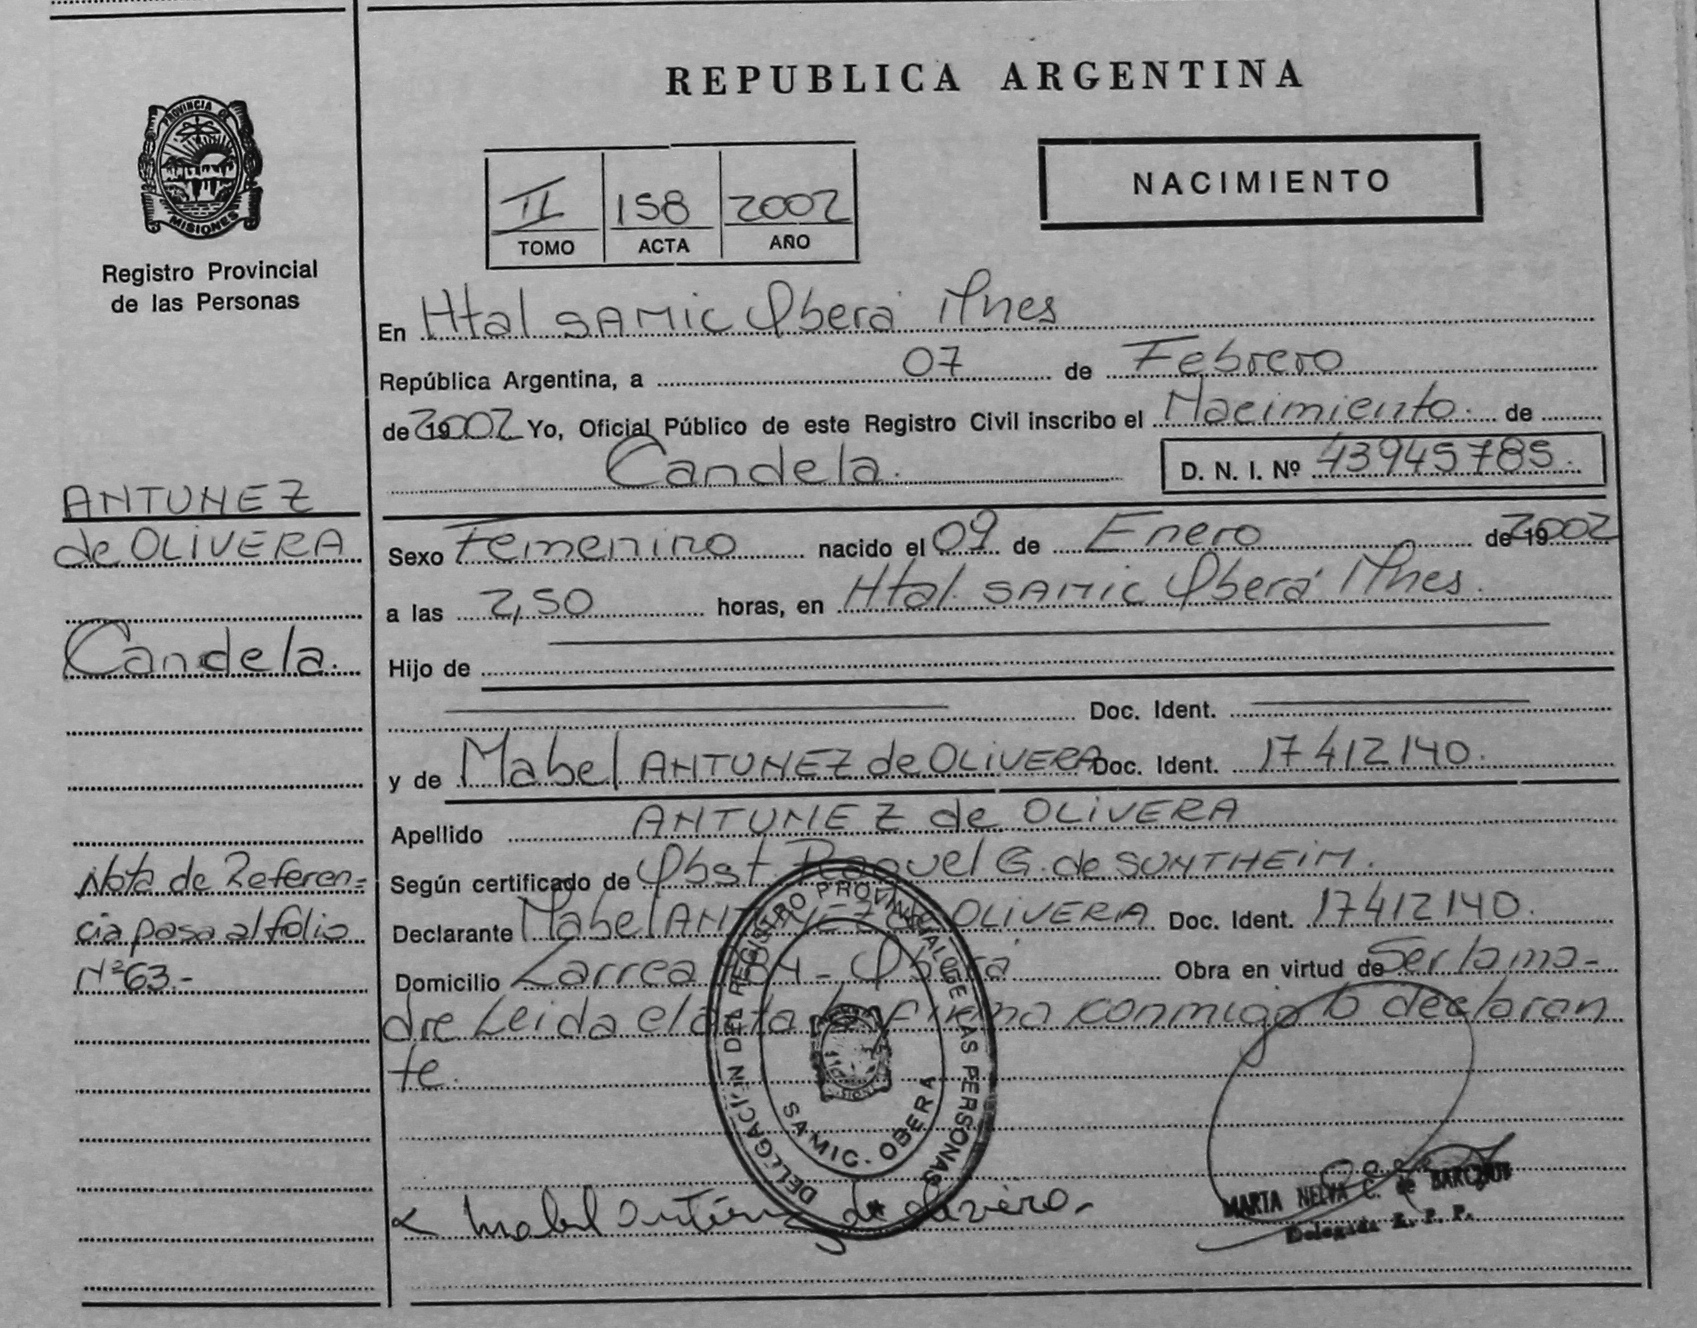 REPUBLICA ARGENTINA
PROVINCIA DE
MISIONES
Registro Provincial
de las Personas
II 158 2002
TOMO ACTA AÑO
NACIMIENTO
En Htal SAMIC Oberá Mnes
República Argentina, a 07 de Febrero
de 2002 Yo, Oficial Público de este Registro Civil inscribo el Nacimiento. de
Candela. D. N. I. Nº 43945785.
ANTUNEZ
de OLIVERA
Candela.
Nota de Referen=
cia pasa al folio
Nº 63.-
Sexo Femenino nacido el 09 de Enero de 2002
a las 2,50 horas, en Htal. SAMIC Oberá Mnes.
Hijo de
Doc. Ident.
y de Mabel ANTUNEZ de OLIVERA Doc. Ident. 17412140.
Apellido ANTUNEZ de OLIVERA
Según certificado de Obst. Raquel G. de SUNTHEIM.
Declarante Mabel ANTUNEZ de OLIVERA Doc. Ident. 17412140.
Domicilio Larrea - Oberá Obra en virtud de Ser la ma-
dre Leida el acta la firma conmigo la declaran
te.
DELEGACIÓN DEL REGISTRO PROVINCIAL DE LAS PERSONAS
SAMIC. OBERA
Mabel Antúnez de Olivera.
MARTA NELVA C. de
Delegada R. P. P.